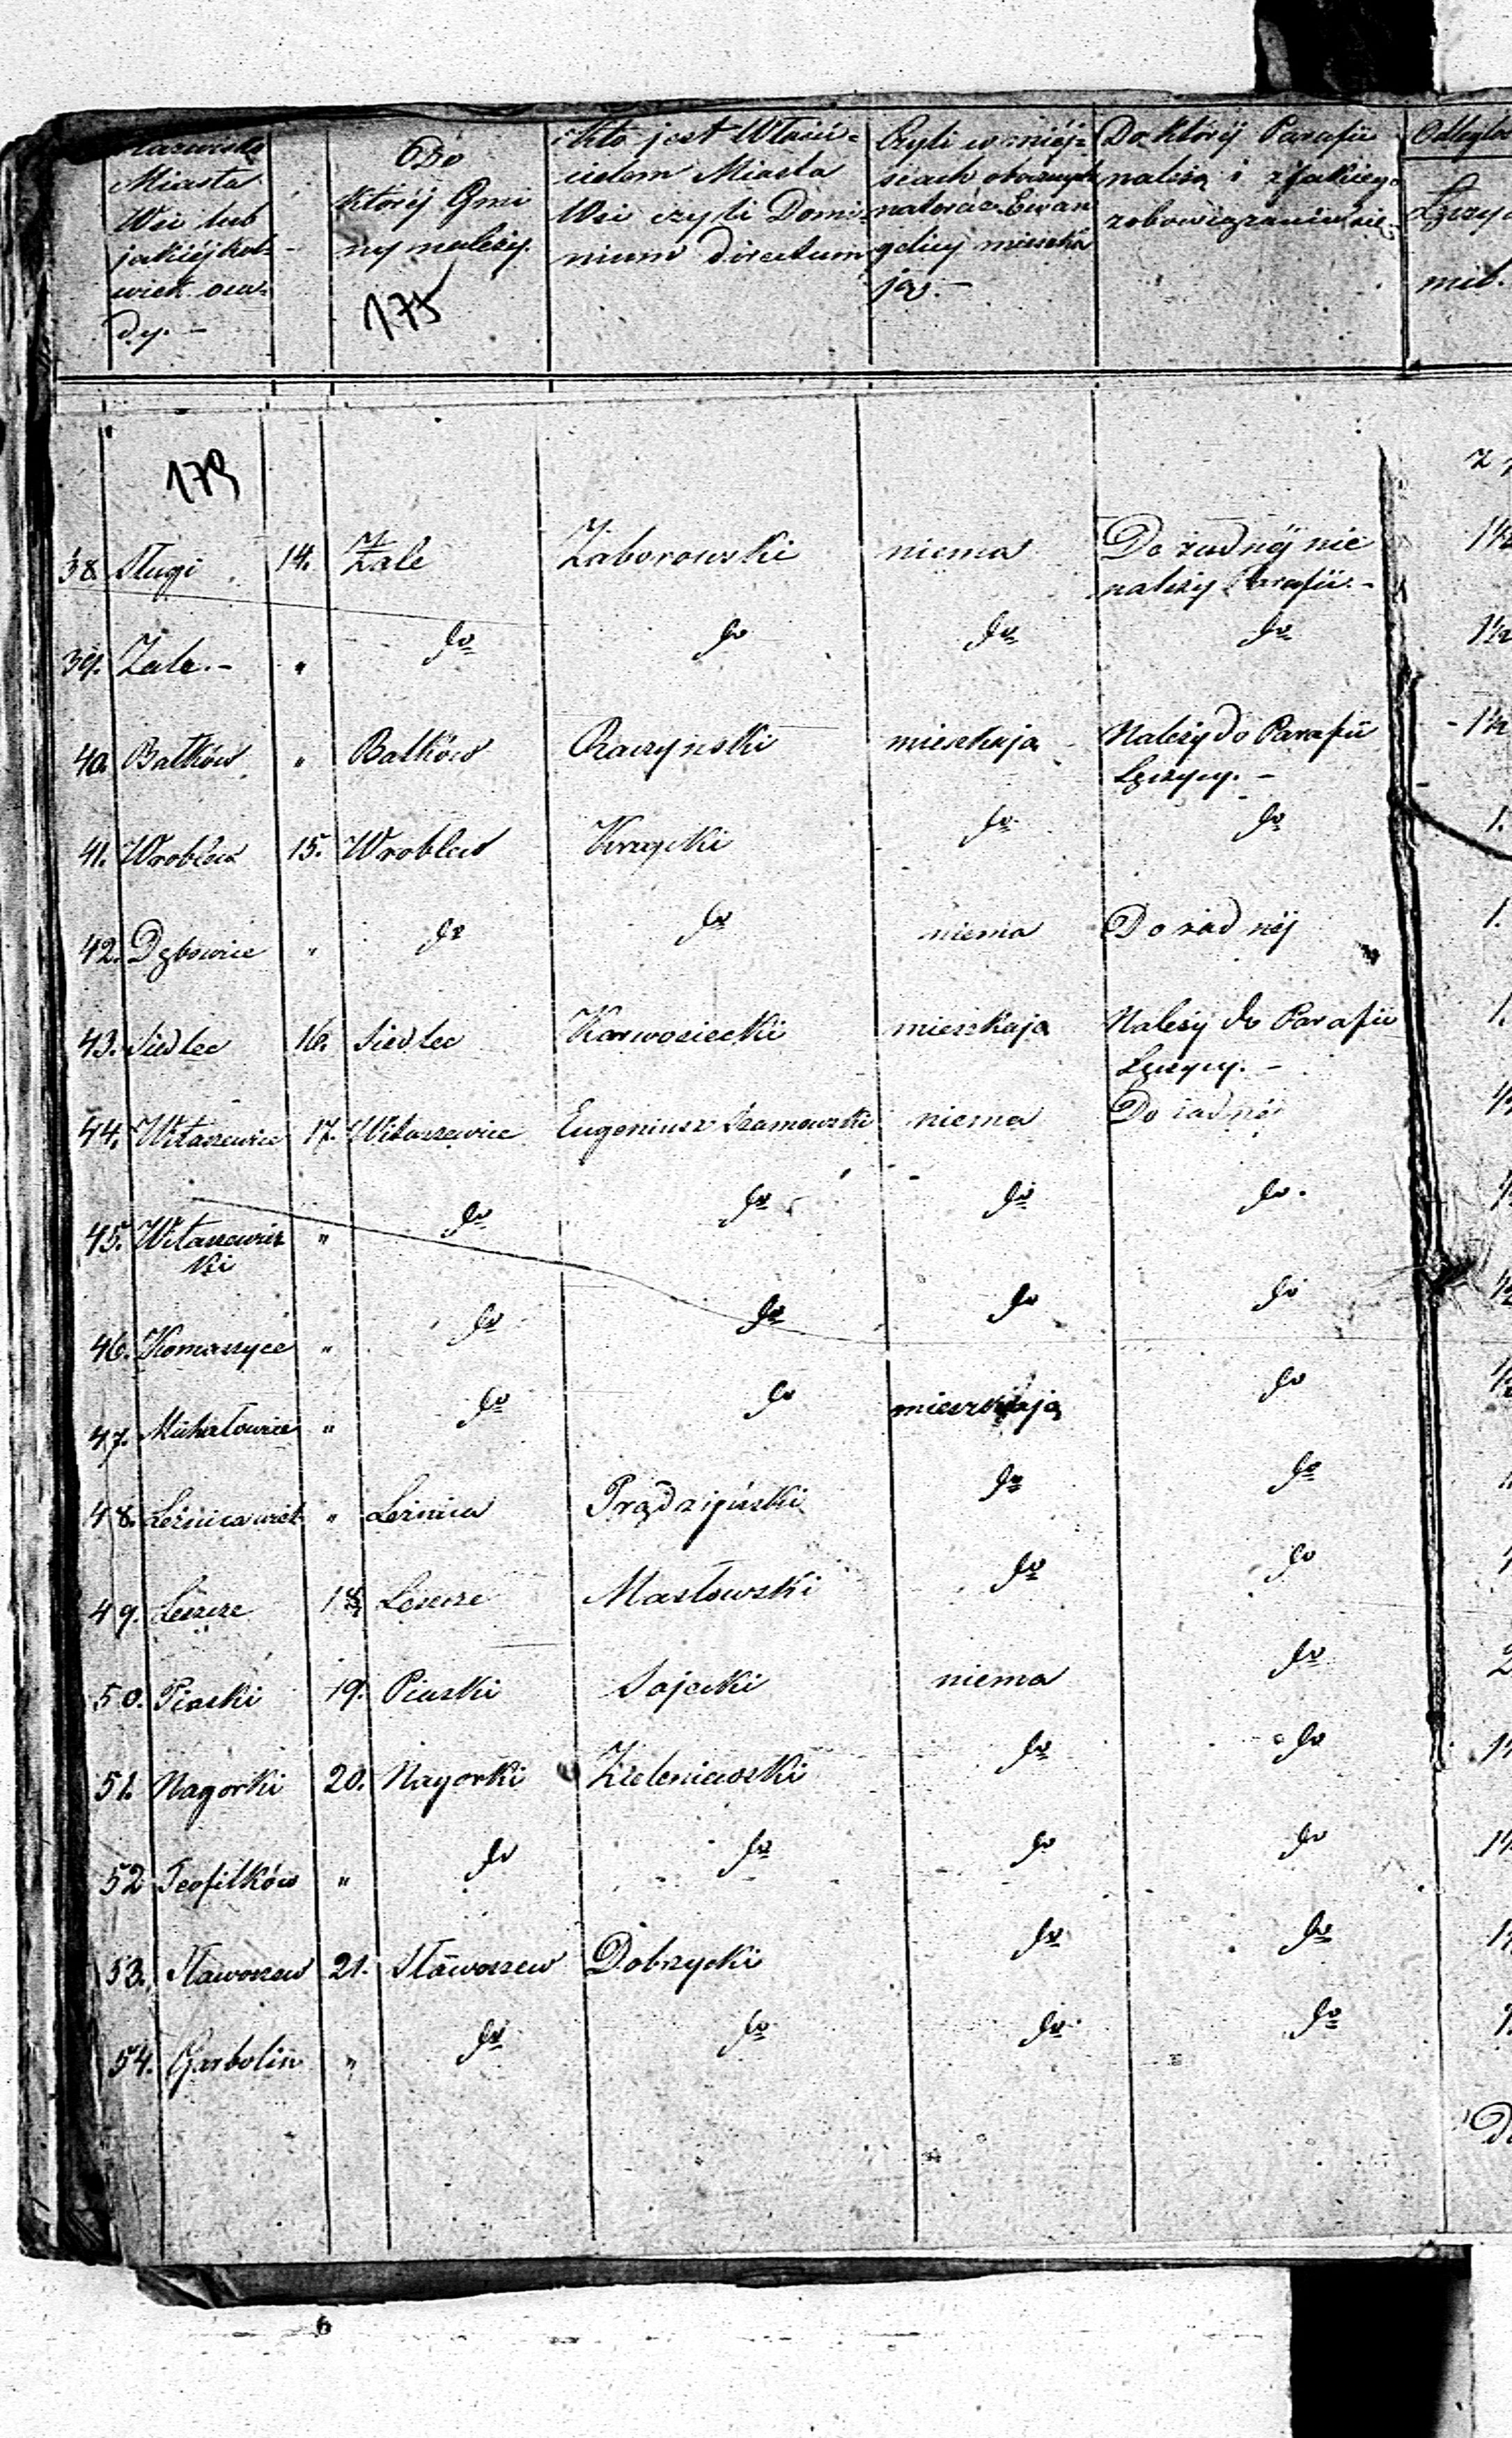 Nazwisko Miasta Wsi lub jakiéjkol- wiek osa- dy. —
Do któréj Gmi ny należy.
175
Kto jest Właści- cielem Miasta Wsi czyli Domi- nium directum
Czyli w miéj- scach obocznych natorác Ewan gelicy mieszka ją. —
Do któréj Parafii należą i z jakiego zobowiązania się
Odległ
Łęczyc
mil.
173
38. Sługi 14. Zale Zaborowski niema Do żadnéj nie
należy Parafii. —
39. Zale. — " do do do do
40. Balków " Balków Raczynski mieszkają Należy do Parafii
Łęczycy. —
41. Wroblew 15. Wroblew Krzycki do do 1.
42. Dębowice " do do niema Do żadnéj 1.
43. Siedlec 16. Siedlec Karwosiecki mieszkają Należy do Parafii 1.
Łęczycy. —
44. Witaszewice 17. Witaszewice Eugeniusz Szamowski niema Do żadnéj
45. Witaszewicz " do do do do.
ki
46. Komaszyce " do do do do
47. Michałowice " do do mieszkają do
48. Leżnica wiel. " Leżnica Prądzyński do do
49. Leszcze 18. Leszcze Masłowski do do
50. Piaski 19. Piaski Sajecki niema do 2
51. Nagorki 20. Nagorki Zieleniewski do do
52 Teofilków " do do do do
53. Sławoszew 21. Sławoszew Dobrzycki do do
54. Garbolin " do do do do